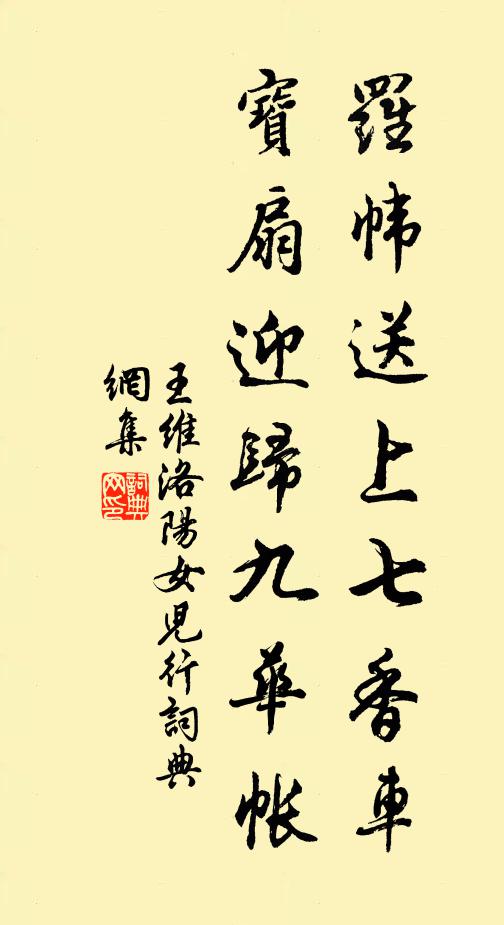 羅幃送上七香車
寶扇迎歸九華帳
王維洛陽女兒行詞典
網集
詞典网印